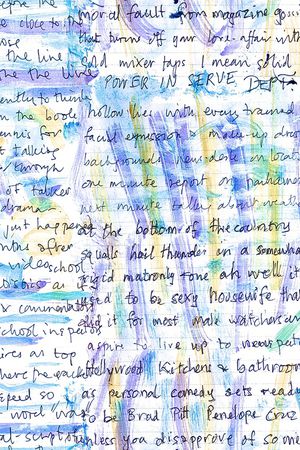 the
e close to the
ose
the line
the the line
ently to think
n the book
ennis for
t talking
through
of talker
drama
just happen
nths after
video school
visors as
& commentary
school inspe
ires as top
here
so
word was
moral fault from magazine goss
that turns off your love affair with
gold mixer taps I mean solid
POWER IN SERVE DEPT
hollow lies with every trained
facial expression & make-up
backgrounds newsdesk on local
one minute report on parliament
next minute talk about weather
at the bottom of the country
squalls hail thunder in a somewhat
rigid matronly tone ah well it
used to be sexy housewife that
did it for most male watchers
aspire to live up to
Hollywood Kitchens & bathroom
as personal comedy sets read
to be Brad Pitt Penelope Cruz
unless you disapprove of so